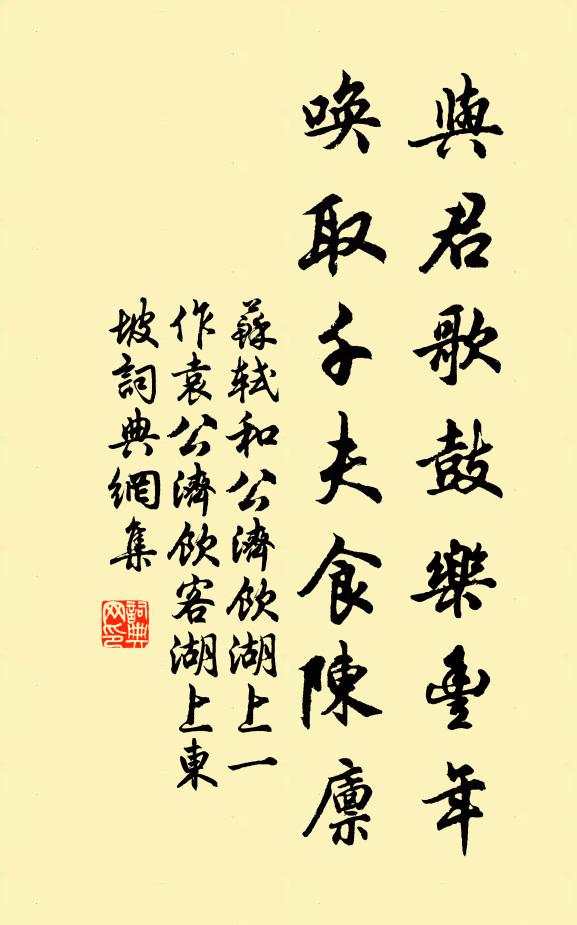 與君歌鼓樂豐年
喚取千夫食陳廪
蘇軾和公濟飲湖上一
作袁公濟飲客湖上東
坡詞典網集
詞典网印